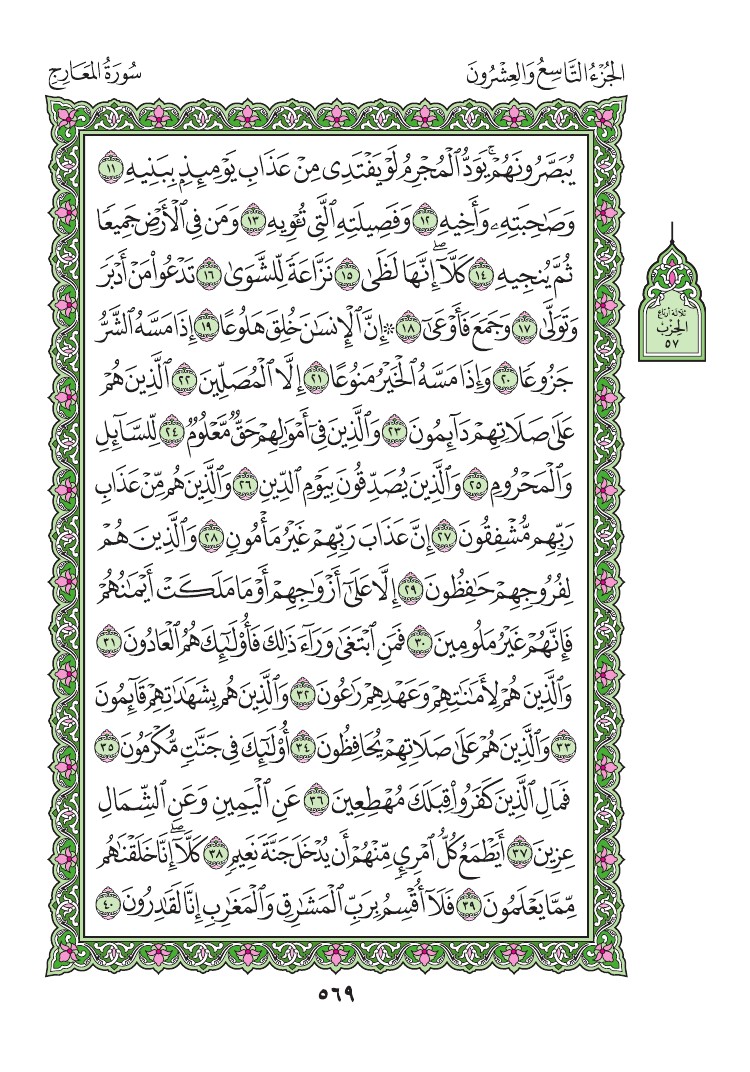 الجُزْءُ التَّاسِعُ وَالعِشْرُونَ
سُورَةُ المَعَارِجِ
يُبَصَّرُونَهُمْۚ يَوَدُّ ٱلْمُجْرِمُ لَوْ يَفْتَدِى مِنْ عَذَابِ يَوْمِئِذٍۭ بِبَنِيهِ ١١
وَصَٰحِبَتِهِۦ وَأَخِيهِ ١٢ وَفَصِيلَتِهِ ٱلَّتِى تُـْٔوِيهِ ١٣ وَمَن فِى ٱلْأَرْضِ جَمِيعًا
ثُمَّ يُنجِيهِ ١٤ كَلَّآۖ إِنَّهَا لَظَىٰ ١٥ نَزَّاعَةً لِّلشَّوَىٰ ١٦ تَدْعُوا۟ مَنْ أَدْبَرَ
وَتَوَلَّىٰ ١٧ وَجَمَعَ فَأَوْعَىٰٓ ١٨ ۞ إِنَّ ٱلْإِنسَٰنَ خُلِقَ هَلُوعًا ١٩ إِذَا مَسَّهُ ٱلشَّرُّ
جَزُوعًا ٢٠ وَإِذَا مَسَّهُ ٱلْخَيْرُ مَنُوعًا ٢١ إِلَّا ٱلْمُصَلِّينَ ٢٢ ٱلَّذِينَ هُمْ
عَلَىٰ صَلَاتِهِمْ دَآئِمُونَ ٢٣ وَٱلَّذِينَ فِىٓ أَمْوَٰلِهِمْ حَقٌّ مَّعْلُومٌ ٢٤ لِّلسَّآئِلِ
وَٱلْمَحْرُومِ ٢٥ وَٱلَّذِينَ يُصَدِّقُونَ بِيَوْمِ ٱلدِّينِ ٢٦ وَٱلَّذِينَ هُم مِّنْ عَذَابِ
رَبِّهِم مُّشْفِقُونَ ٢٧ إِنَّ عَذَابَ رَبِّهِمْ غَيْرُ مَأْمُونٍ ٢٨ وَٱلَّذِينَ هُمْ
لِفُرُوجِهِمْ حَٰفِظُونَ ٢٩ إِلَّا عَلَىٰٓ أَزْوَٰجِهِمْ أَوْ مَا مَلَكَتْ أَيْمَٰنُهُمْ
فَإِنَّهُمْ غَيْرُ مَلُومِينَ ٣٠ فَمَنِ ٱبْتَغَىٰ وَرَآءَ ذَٰلِكَ فَأُو۟لَٰٓئِكَ هُمُ ٱلْعَادُونَ ٣١
وَٱلَّذِينَ هُمْ لِأَمَٰنَٰتِهِمْ وَعَهْدِهِمْ رَٰعُونَ ٣٢ وَٱلَّذِينَ هُم بِشَهَٰدَٰتِهِمْ قَآئِمُونَ
٣٣ وَٱلَّذِينَ هُمْ عَلَىٰ صَلَاتِهِمْ يُحَافِظُونَ ٣٤ أُو۟لَٰٓئِكَ فِى جَنَّٰتٍ مُّكْرَمُونَ ٣٥
فَمَالِ ٱلَّذِينَ كَفَرُوا۟ قِبَلَكَ مُهْطِعِينَ ٣٦ عَنِ ٱلْيَمِينِ وَعَنِ ٱلشِّمَالِ
عِزِينَ ٣٧ أَيَطْمَعُ كُلُّ ٱمْرِئٍ مِّنْهُمْ أَن يُدْخَلَ جَنَّةَ نَعِيمٍ ٣٨ كَلَّآۖ إِنَّا خَلَقْنَٰهُم
مِّمَّا يَعْلَمُونَ ٣٩ فَلَآ أُقْسِمُ بِرَبِّ ٱلْمَشَٰرِقِ وَٱلْمَغَٰرِبِ إِنَّا لَقَٰدِرُونَ ٤٠
ثلاثة أرباع
الحِزْبِ
٥٧
٥٦٩